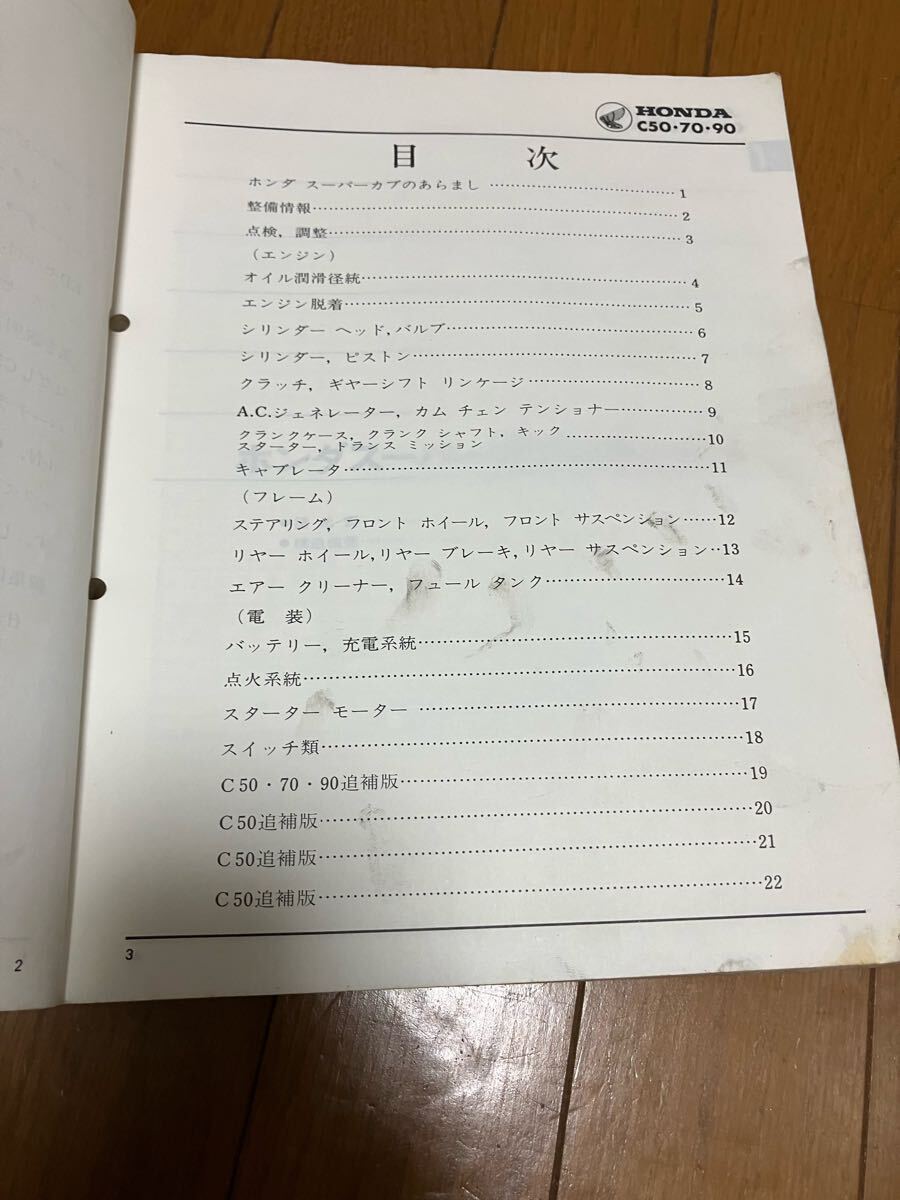 HONDA
C50・70・90
目 次
ホンダ スーパーカブのあらまし…………………………1
整備情報……………………………………………………2
点検, 調整…………………………………………………3
(エンジン)
オイル潤滑径統……………………………………………4
エンジン脱着………………………………………………5
シリンダー ヘッド,バルブ………………………………6
シリンダー, ピストン……………………………………7
クラッチ, ギヤーシフト リンケージ……………………8
A.C.ジェネレーター, カム チェン テンショナー………9
クランクケース, クランク シャフト, キック
スターター, トランス ミッション………………10
キャブレータ………………………………………………11
(フレーム)
ステアリング, フロント ホイール, フロント サスペンション……12
リヤー ホイール,リヤー ブレーキ,リヤー サスペンション‥13
エアー クリーナー, フュール タンク……………………14
(電 装)
バッテリー, 充電系統……………………………………15
点火系統……………………………………………………16
スターター モーター ……………………………………17
スイッチ類…………………………………………………18
C50・70・90追補版………………………………………19
C50追補版…………………………………………………20
C50追補版…………………………………………………21
C50追補版…………………………………………………22
2
3